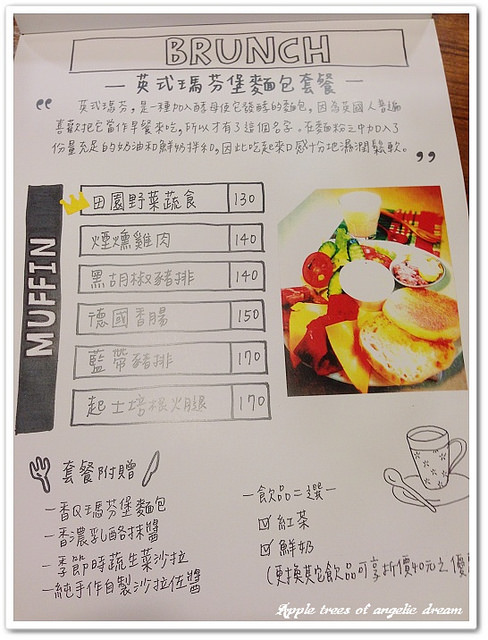 BRUNCH
— 英式瑪芬堡麵包套餐 —
“ 英式瑪芬,是一種加入酵母使它發酵的麵包,因為英國人普遍
喜歡把它當作早餐來吃,所以才有了這個名字。在麵粉之中加入了
份量充足的奶油和鮮奶拌和,因此吃起來口感十分地濕潤鬆軟。 ”
MUFFIN
田園野菜蔬食 130
煙燻雞肉 140
黑胡椒豬排 140
德國香腸 150
藍帶豬排 170
起士培根火腿 170
套餐附贈
—香Q瑪芬堡麵包
—香濃乳酪抹醬
—季節時蔬生菜沙拉
—純手作自製沙拉佐醬
—飲品二選一
☑ 紅茶
☑ 鮮奶
(更換其它飲品可享折價40元之優
Apple trees of angelic dream